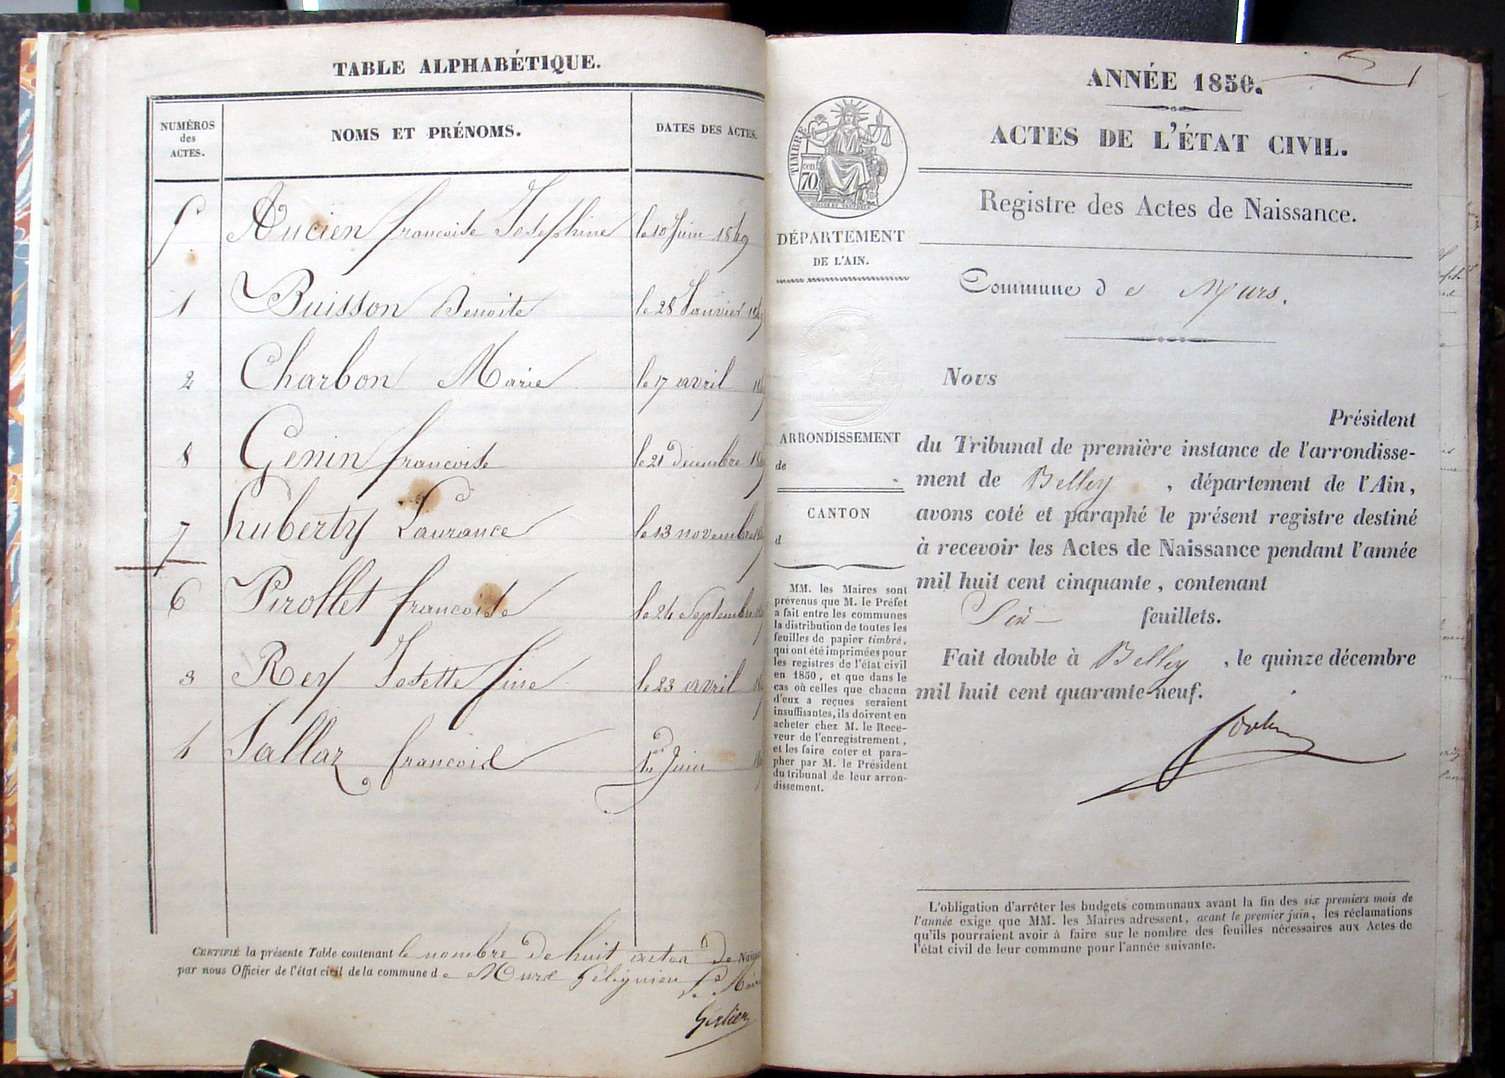 TABLE ALPHABÉTIQUE.
NUMÉROS
des
ACTES.
NOMS ET PRÉNOMS.
DATES DES ACTES.
5 Aucien francoise Josephine le 10 Juin 1849
1 Buisson Benoite le 28 Janvier
2 Charbon Marie le 17 avril
8 Genin francoise le 21 decembre
7 huberty Laurance le 13 novembre
6 Pirollet francoise le 24 Septembre
3 Rey Josette fine le 23 avril
4 Sallaz francois 1er Juin
CERTIFIÉ la présente Table contenant le nombre de huit actes de
par nous Officier de l'état civil de la commune de Murs Gélignieu Le
ANNÉE 1850.
1
ACTES DE L'ÉTAT CIVIL.
Registre des Actes de Naissance.
TIMBRE
70
DÉPARTEMENT
DE L'AIN.
Commune de Murs.
ARRONDISSEMENT
de
CANTON
d
MM. les Maires sont
prévenus que M. le Préfet
a fait entre les communes
la distribution de toutes les
feuilles de papier timbré,
qui ont été imprimées pour
les registres de l'état civil
en 1850, et que dans le
cas où celles que chacun
d'eux a reçues seraient
insuffisantes, ils doivent en
acheter chez M. le Rece-
veur de l'enregistrement,
et les faire coter et para-
pher par M. le Président
du tribunal de leur arron-
dissement.
Nous
Président
du Tribunal de première instance de l'arrondisse-
ment de Belley, département de l'Ain,
avons coté et paraphé le présent registre destiné
à recevoir les Actes de Naissance pendant l'année
mil huit cent cinquante, contenant
Six feuillets.
Fait double à Belley, le quinze décembre
mil huit cent quarante-neuf.
L'obligation d'arrêter les budgets communaux avant la fin des six premiers mois de
l'année exige que MM. les Maires adressent, avant le premier juin, les réclamations
qu'ils pourraient avoir à faire sur le nombre des feuilles nécessaires aux Actes de
l'état civil de leur commune pour l'année suivante.